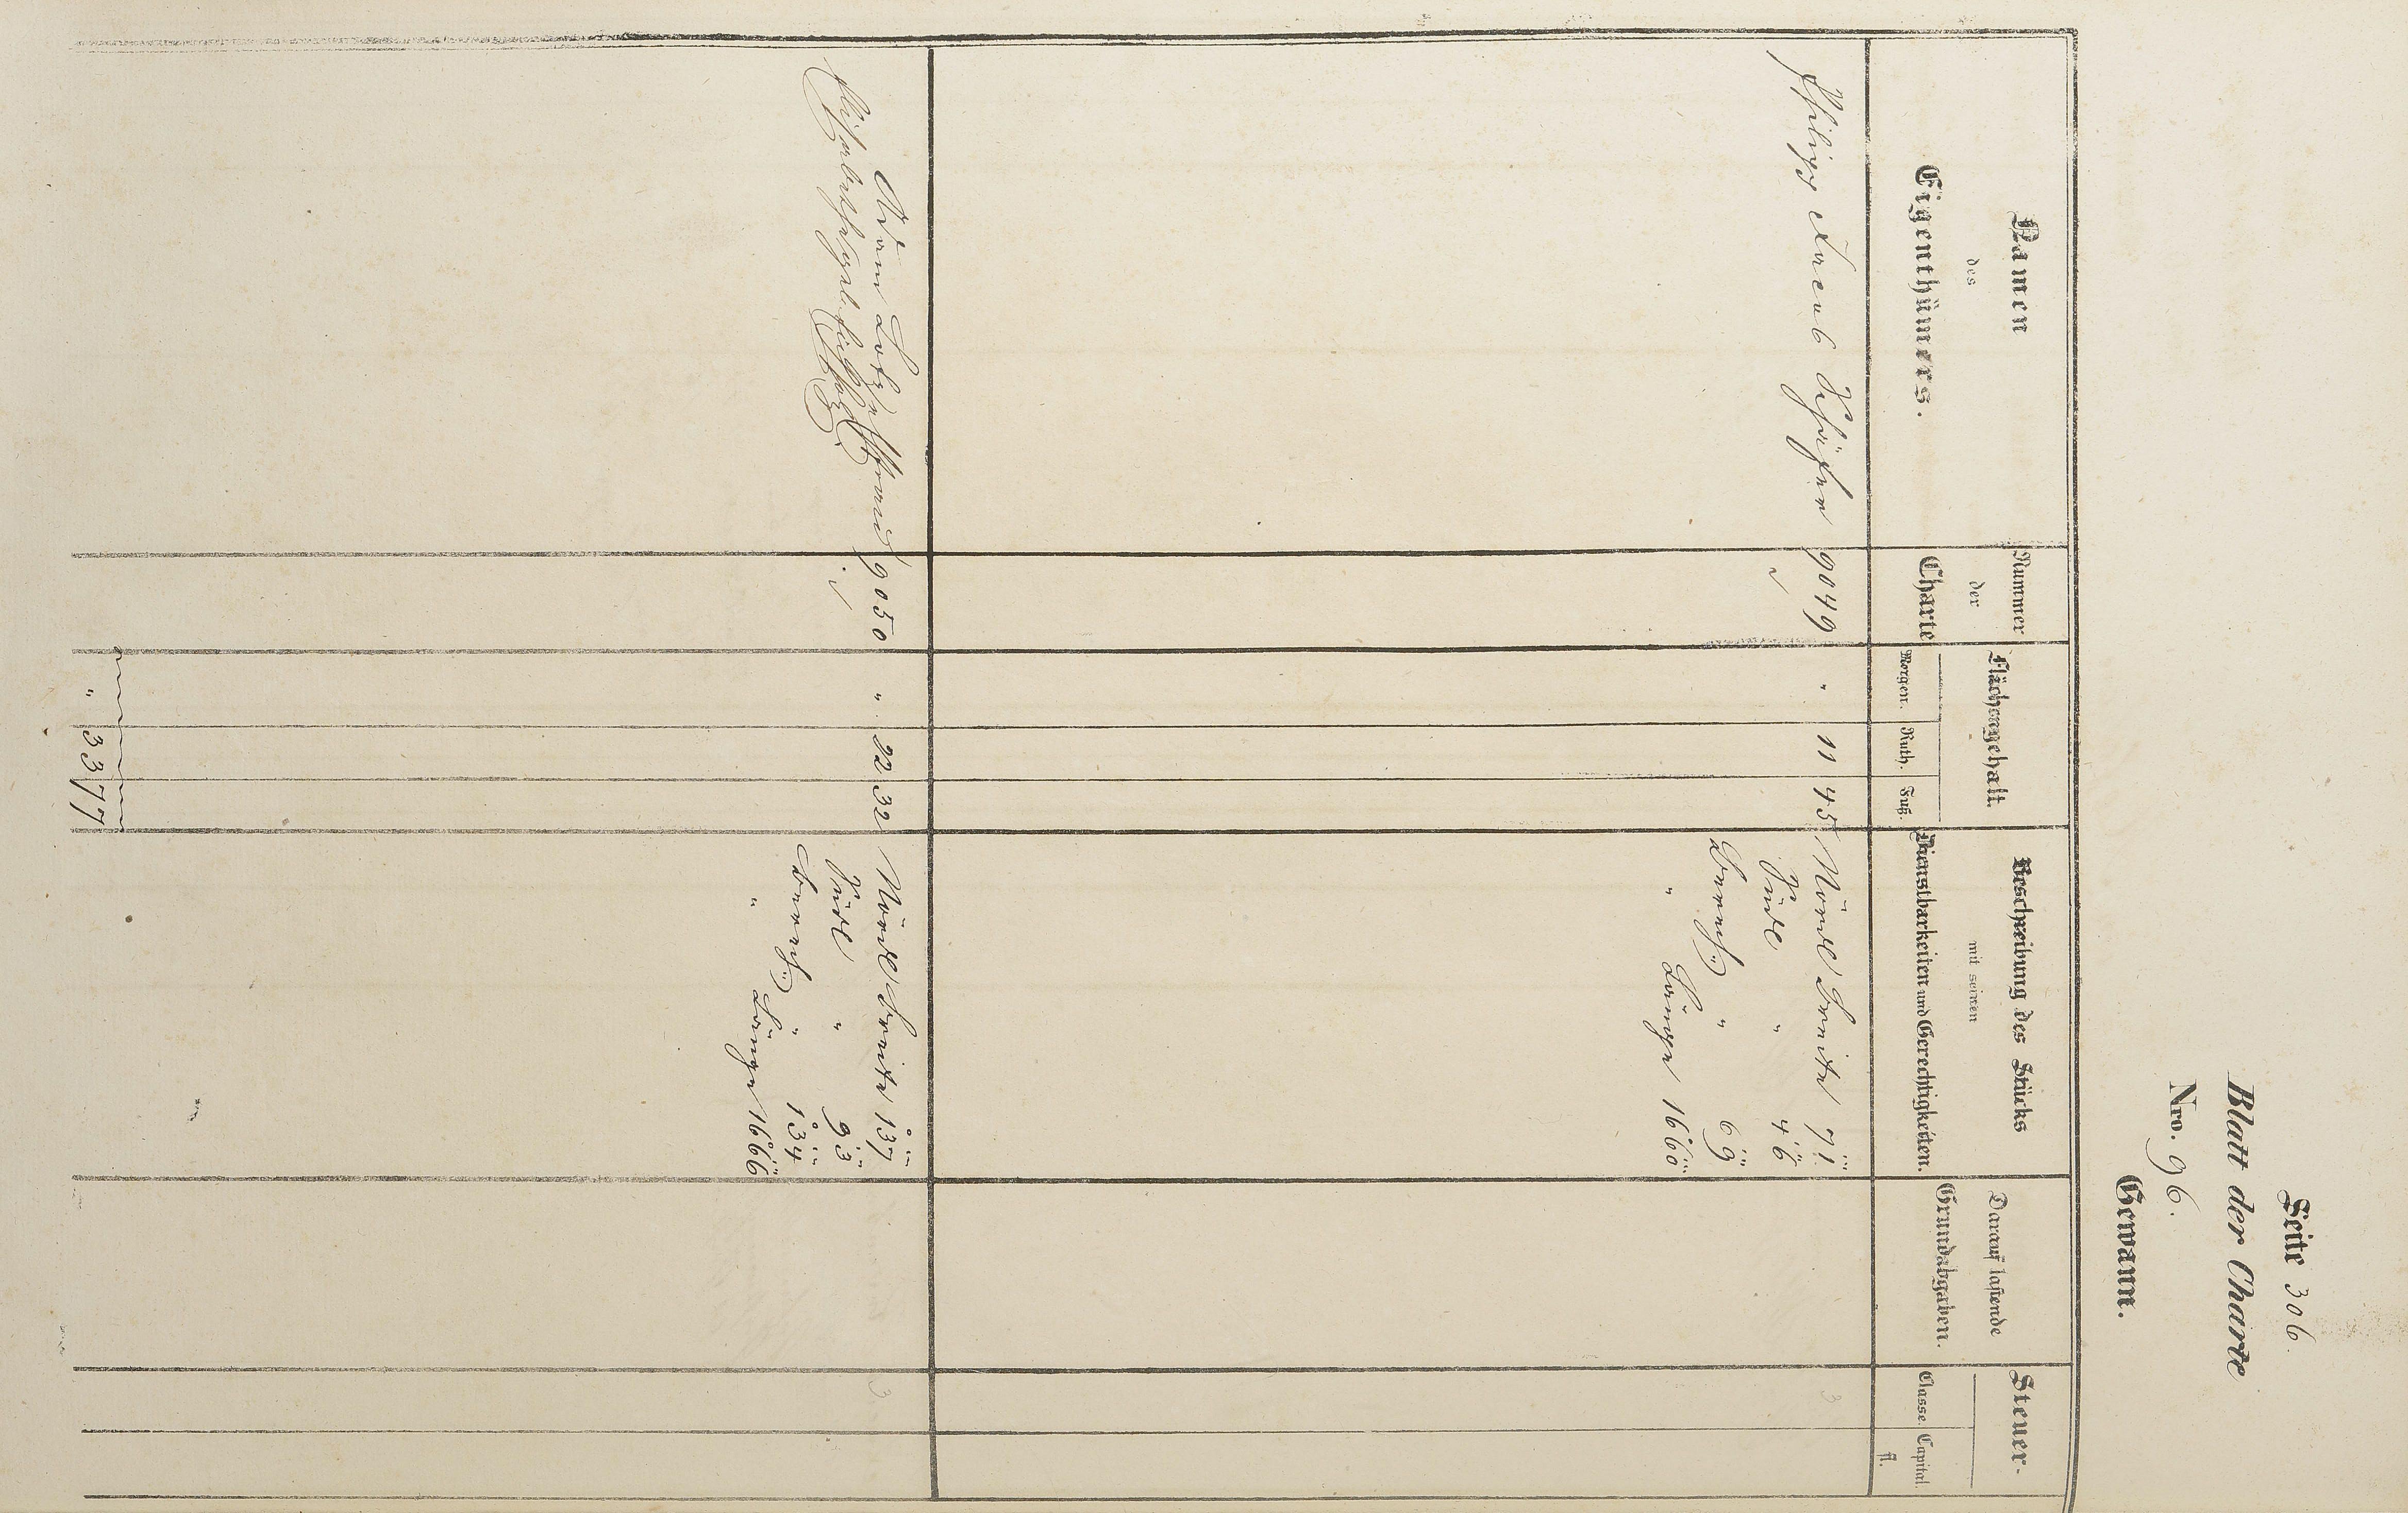 Seite 306.
Blatt der Charte
Nro. 96.
Gewann.
Namen
des
Eigenthümers.
Nummer
der
Charte
Flächengehalt.
Morgen. Ruth. Fuß.
Beschreibung des Stücks
mit seinen
Dienstbarkeiten und Gerechtigkeiten.
Darauf lastende
Grundabgaben.
Steuer-
Classe. Capital.
fl.
Philipp Jacob Schäfer 9049 " 11 45 Nördl Breite 71 3
Südl " 46
Berech. " 69
" Länge 1660
Adam 9050 " 22 32 Nördl Breite 137 3
Südl " 93
Berech. " 134
" Länge 1666
" 33 77